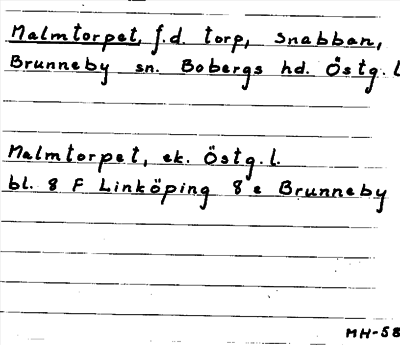 Malmtorpet, f.d. torp, Snabban,
Brunneby sn. Bobergs hd. Östg.l
Malmtorpet, ek. Östg.l.
bl. 8 F Linköping 8 e Brunneby
MH-58